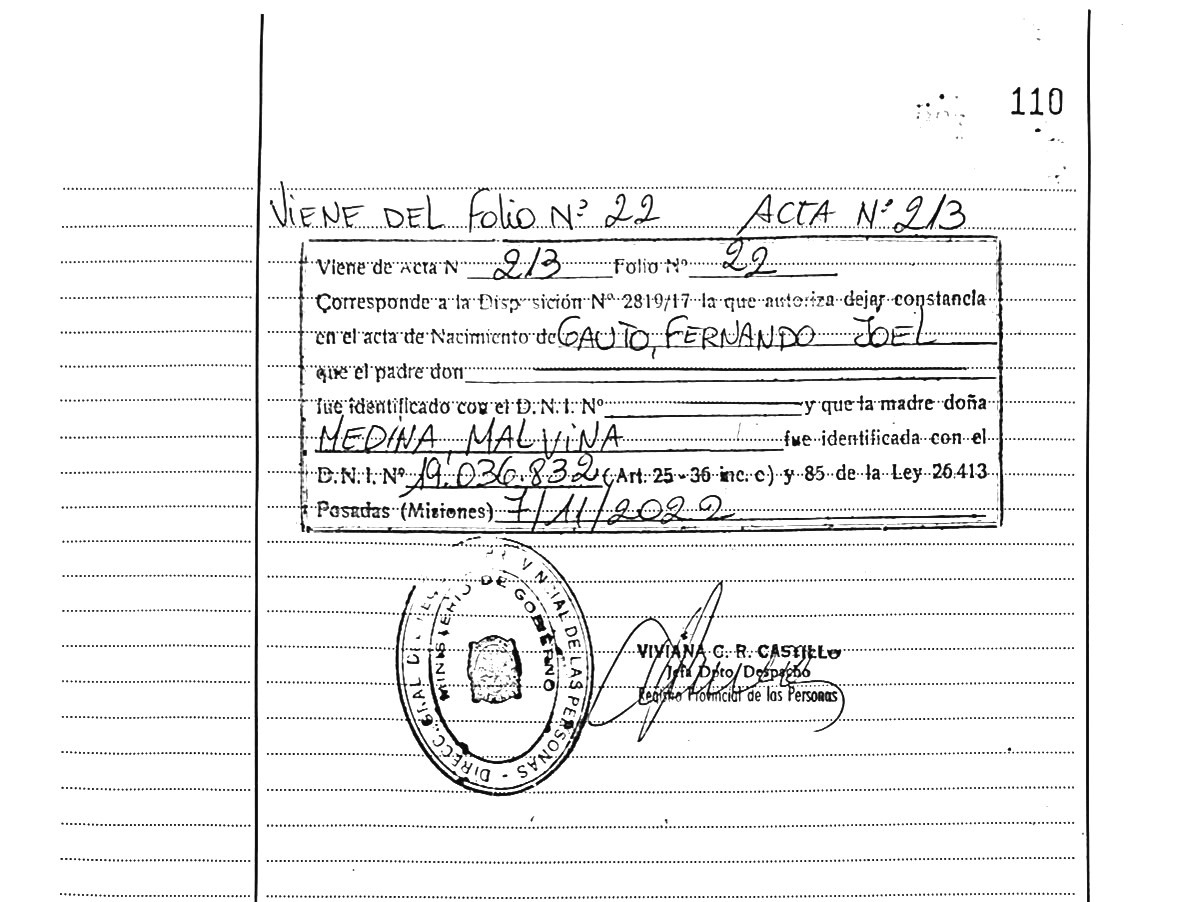 110
VIENE DEL Folio Nº 22 ACTA Nº 213
Viene de Acta N 213 Folio Nº 22
Corresponde a la Disposición Nº 2819/17 la que autoriza dejar constancia
en el acta de Nacimiento de GAUTO, FERNANDO JOEL
que el padre don
fue identificado con el D.N.I. Nº y que la madre doña
MEDINA, MALVINA fue identificada con el
D.N.I. Nº 19.036.832 (Art. 25 - 36 inc. c) y 85 de la Ley 26.413
Posadas (Misiones) 7/11/2022
DIRECC. GRAL DEL REG. PROVINCIAL DE LAS PERSONAS -
MINISTERIO DE GOBIERNO
VIVIANA C. R. CASTILLO
Jefa Dpto Despacho
Registro Provincial de las Personas